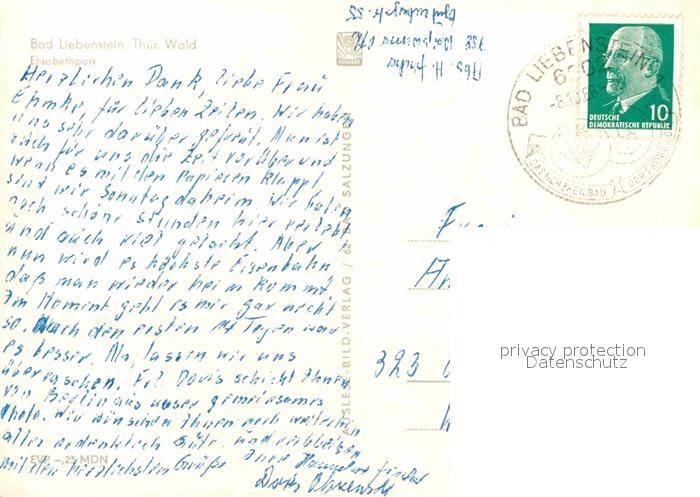 Bad Liebenstein/Thür. Wald
Elisabethpark
Herzlichen Dank, liebe Frau
Ehmke, für lieben Zeilen. Wir haben
uns sehr darüber gefreut. Nun ist
auch für uns die Zeit vorüber und
wenn es mit den Papieren klappt
sind wir Sonntag daheim. Wir haben
noch schöne Stunden hier verlebt
und auch viel gelacht. Aber
nun wird es höchste Eisenbahn
daß man wieder heim kommt
Im Moment geht es mir gar nicht
so. Nach den ersten Tagen war
es besser. Na, lassen wir uns
überraschen. Frl. Doris schickt Ihnen
von Berlin aus unser gemeinsames
Photo. Wir wünschen Ihnen noch weiterhin
alles erdenklich Gute. und verbleiben
mit den herzlichsten Grüße Ihre Hannelore Fischer
Doris
EVP -,25 MDN
AUSLESE-BILD-VERLAG / 62 BAD SALZUNGEN
Abs. H. Fischer
758
BAD LIEBENSTEIN
6202
DAS HERZHEILBAD DER
10
DEUTSCHE
DEMOKRATISCHE REPUBLIK
323
privacy protection
Datenschutz